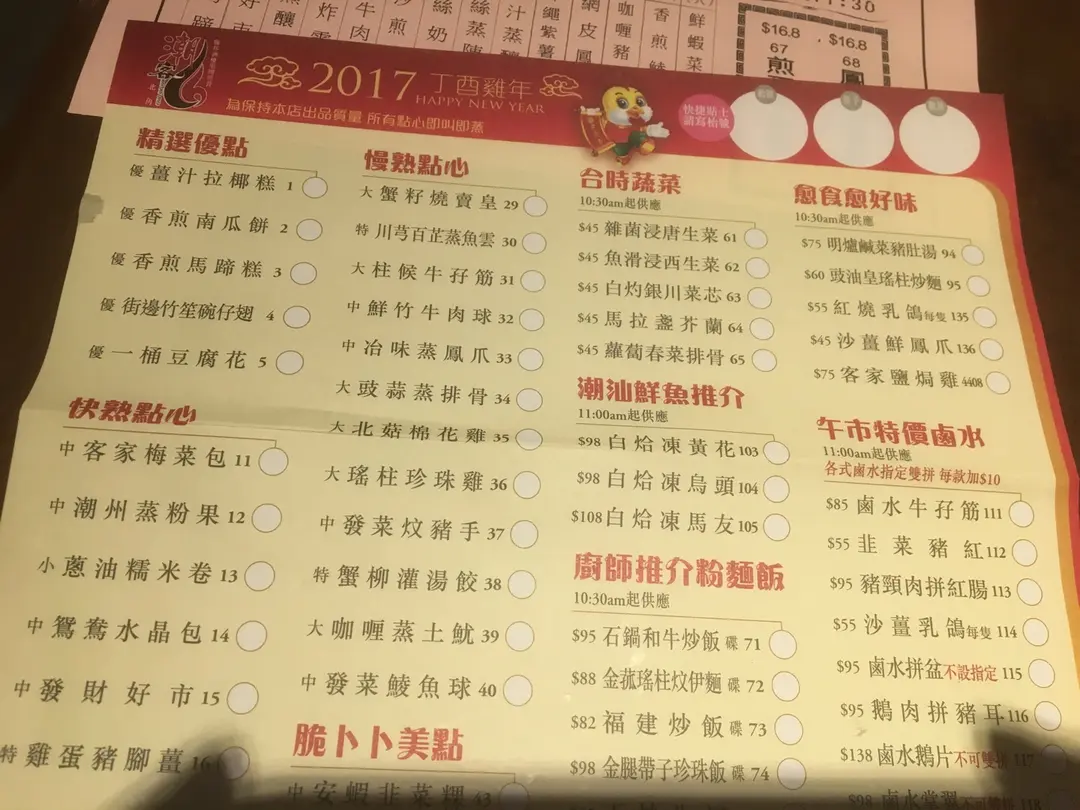 2017 丁酉雞年
HAPPY NEW YEAR
為保持本店出品質量 所有點心即叫即蒸
快捷貼士
請寫枱號
$16.8
67
煎
$16.8
68
精選優點
優 薑汁拉椰糕 1
優 香煎南瓜餅 2
優 香煎馬蹄糕 3
優 街邊竹笙碗仔翅 4
優 一桶豆腐花 5
快熟點心
中 客家梅菜包 11
中 潮州蒸粉果 12
小 蔥油糯米卷 13
中 鴛鴦水晶包 14
中 發財好市 15
特 雞蛋豬腳薑 16
慢熟點心
大 蟹籽燒賣皇 29
特 川芎百芷蒸魚雲 30
大 柱候牛孖筋 31
中 鮮竹牛肉球 32
中 冶味蒸鳳爪 33
大 豉蒜蒸排骨 34
大 北菇棉花雞 35
大 瑤柱珍珠雞 36
中 發菜炆豬手 37
特 蟹柳灌湯餃 38
大 咖喱蒸土魷 39
中 發菜鯪魚球 40
脆卜卜美點
中 安蝦韭菜粿 43
合時蔬菜
10:30am起供應
$45 雜菌浸唐生菜 61
$45 魚滑浸西生菜 62
$45 白灼銀川菜芯 63
$45 馬拉盞芥蘭 64
$45 蘿蔔春菜排骨 65
潮汕鮮魚推介
11:00am起供應
$98 白烚凍黃花 103
$98 白烚凍烏頭 104
$108 白烚凍馬友 105
廚師推介粉麵飯
10:30am起供應
$95 石鍋和牛炒飯 碟 71
$88 金菰瑤柱炆伊麵 碟 72
$82 福建炒飯 碟 73
$98 金腿帶子珍珠飯 碟 74
愈食愈好味
10:30am起供應
$75 明爐鹹菜豬肚湯 94
$60 豉油皇瑤柱炒麵 95
$55 紅燒乳鴿 每隻 135
$45 沙薑鮮鳳爪 136
$75 客家鹽焗雞 4408
午市特價鹵水
11:00am起供應
各式鹵水指定雙拼 每款加$10
$85 鹵水牛孖筋 111
$55 韭菜豬紅 112
$95 豬頸肉拼紅腸 113
$55 沙薑乳鴿 每隻 114
$95 鹵水拼盆 不設指定 115
$95 鵝肉拼豬耳 116
$138 鹵水鵝片 不可雙拼 117